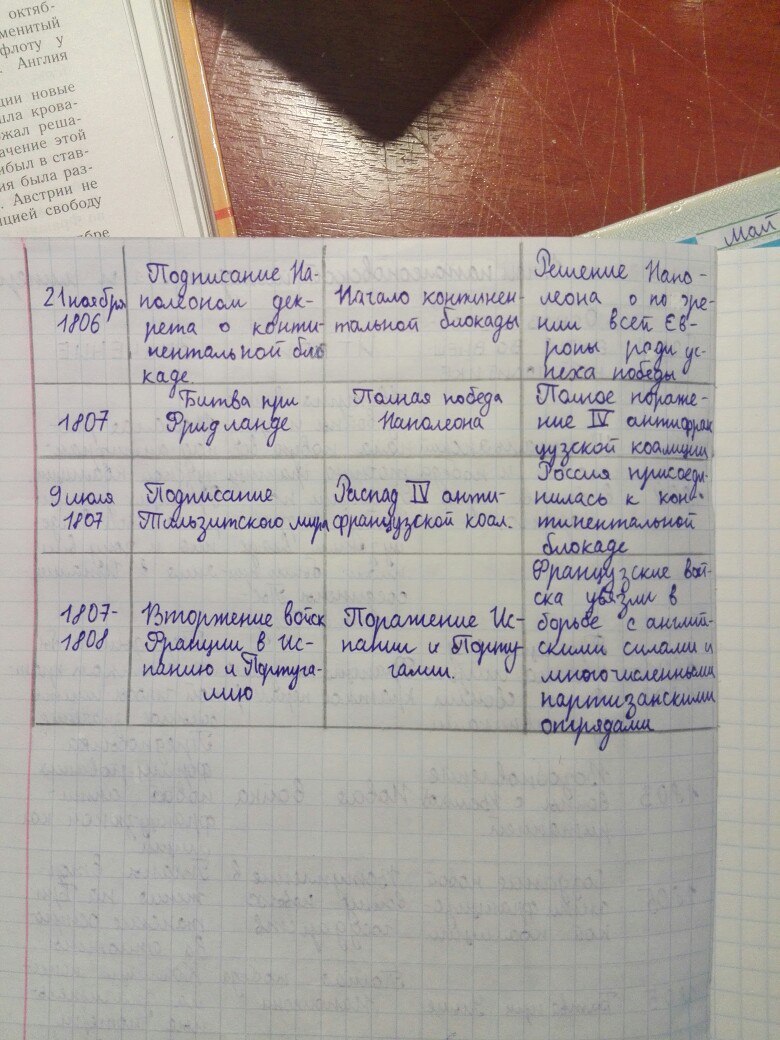 октяб-
менитый
флоту у
Англия
ции новые
шла крова-
жал реша-
ачение этой
ибыл в став-
ия была раз-
. Австрии не
ицией свободу
бре
май
21 ноября
1806
Подписание На-
полеоном дек-
рета о конти-
нентальной бло
каде
Начало континен-
тальной блокады
Решение Напо-
леона о по
нии всей Ев-
ропы ради ус-
пеха победы
1807
Битва при
Фридланде
Полная победа
Наполеона
Полное пораже-
ние IV антифран
цузской коалиции
9 июля
1807
Подписание
Тильзитского мира
Распад IV анти-
французской коал.
Россия присоеди-
нилась к кон-
тинентальной
блокаде
1807-
1808
Вторжение войск
Франции в Ис-
панию и Португа-
лию
Поражение Ис-
пании и Порту
галии.
Французские вой-
ска увязли в
борьбе с англий-
скими силами и
многочисленными
партизанскими
отрядами